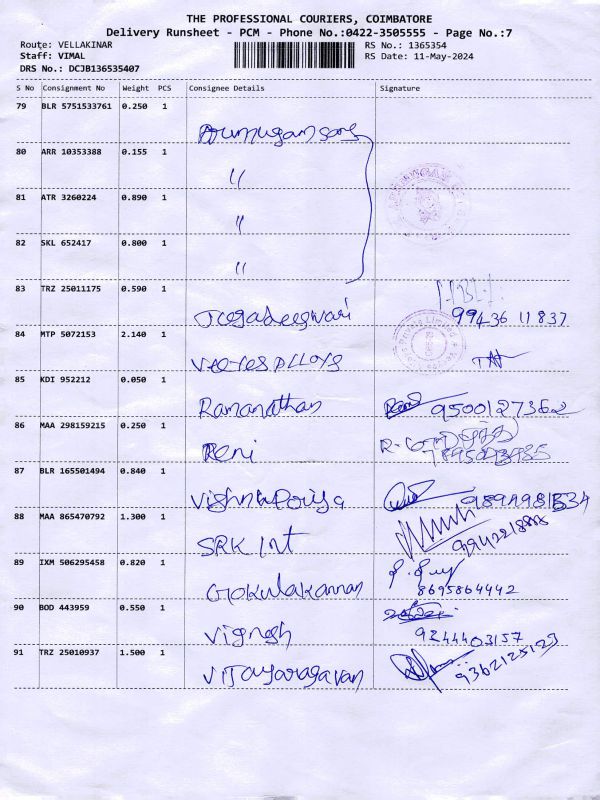 THE PROFESSIONAL COURIERS, COIMBATORE
Delivery Runsheet - PCM - Phone No.:0422-3505555 - Page No.:7
Route: VELLAKINAR RS No.: 1365354
Staff: VIMAL RS Date: 11-May-2024
DRS No.: DCJB136535407
S No Consignment No Weight PCS Consignee Details Signature
79 BLR 5751533761 0.250 1
Arumugam sons
80 ARR 10353388 0.155 1
"
81 ATR 3260224 0.890 1
"
82 SKL 652417 0.800 1
"
83 TRZ 25011175 0.590 1
Jegadeeswari 99436 11837
84 MTP 5072153 2.140 1
85 KDI 952212 0.050 1
Ramanathan 9500127362
86 MAA 298159215 0.250 1
Reni
87 BLR 165501494 0.840 1
Vishnu Poriya
88 MAA 865470792 1.300 1
SRK Int
89 IXM 506295458 0.820 1
Gokulakannan 8695864442
90 BOD 443959 0.550 1
Vignesh 9244403157
91 TRZ 25010937 1.500 1
Vijayaragavan 9362125123